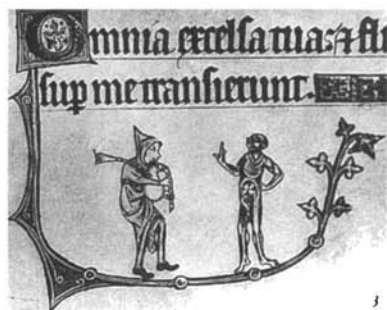 Omnia excelsa tua: ⁊ fl
sup me transierunt.
3